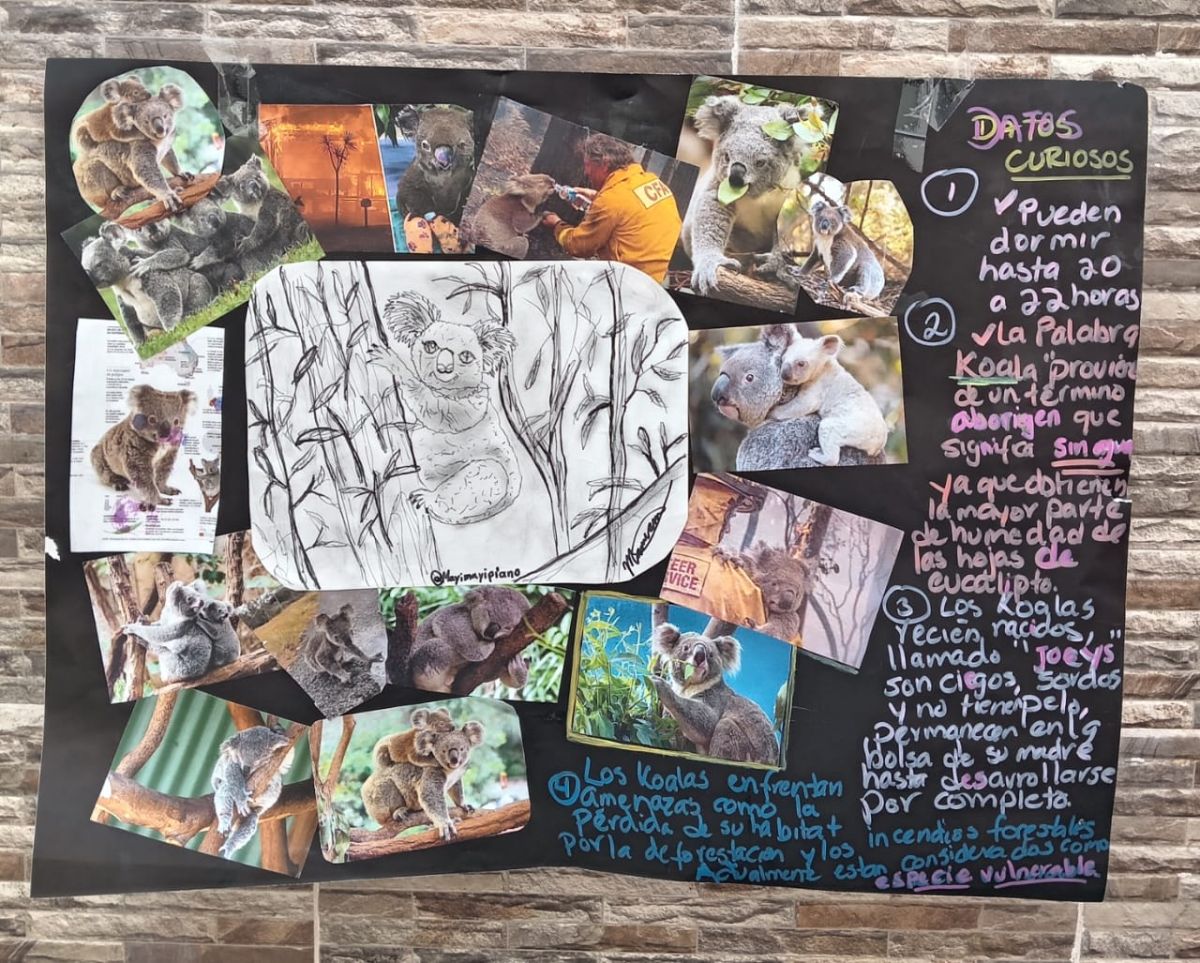 DATOS
CURIOSOS
1
✓Pueden
dormir
hasta 20
a 22 horas
2
✓La Palabra
Koala" provien
de un término
aborigen que
signifca sin agua
ya que obtienen
la mayor parte
de humedad de
las hojas de
eucalipto.
3 Los Koalas
recién nacidos,
llamado "Joeys"
son ciegos, sordos
y no tienen pelo,
permanecen en la
bolsa de su madre
hasta desarrollarse
por completo.
4 Los Koalas enfrentan
amenazas como la
Pérdida de su habitat
por la deforestación y los incendios forestales
Actualmente estan consideradas como
especie vulnerable
CFA
EER
VICE
@Mayimayipiano